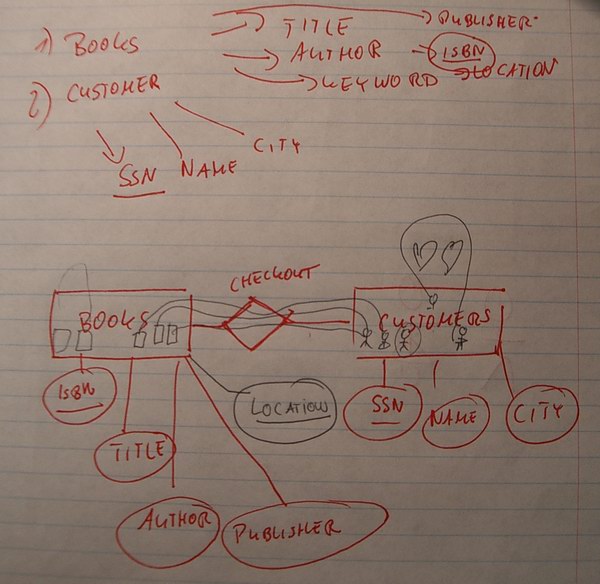 1) BOOKS TITLE PUBLISHER
AUTHOR ISBN
KEYWORD LOCATION
2) CUSTOMER
SSN NAME CITY
CHECKOUT
BOOKS CUSTOMERS
ISBN LOCATION SSN NAME CITY
TITLE
AUTHOR PUBLISHER